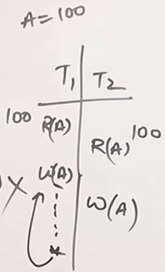 A = 100
T₁ T₂
100 R(A)
R(A) 100
W(A)
X
W(A)